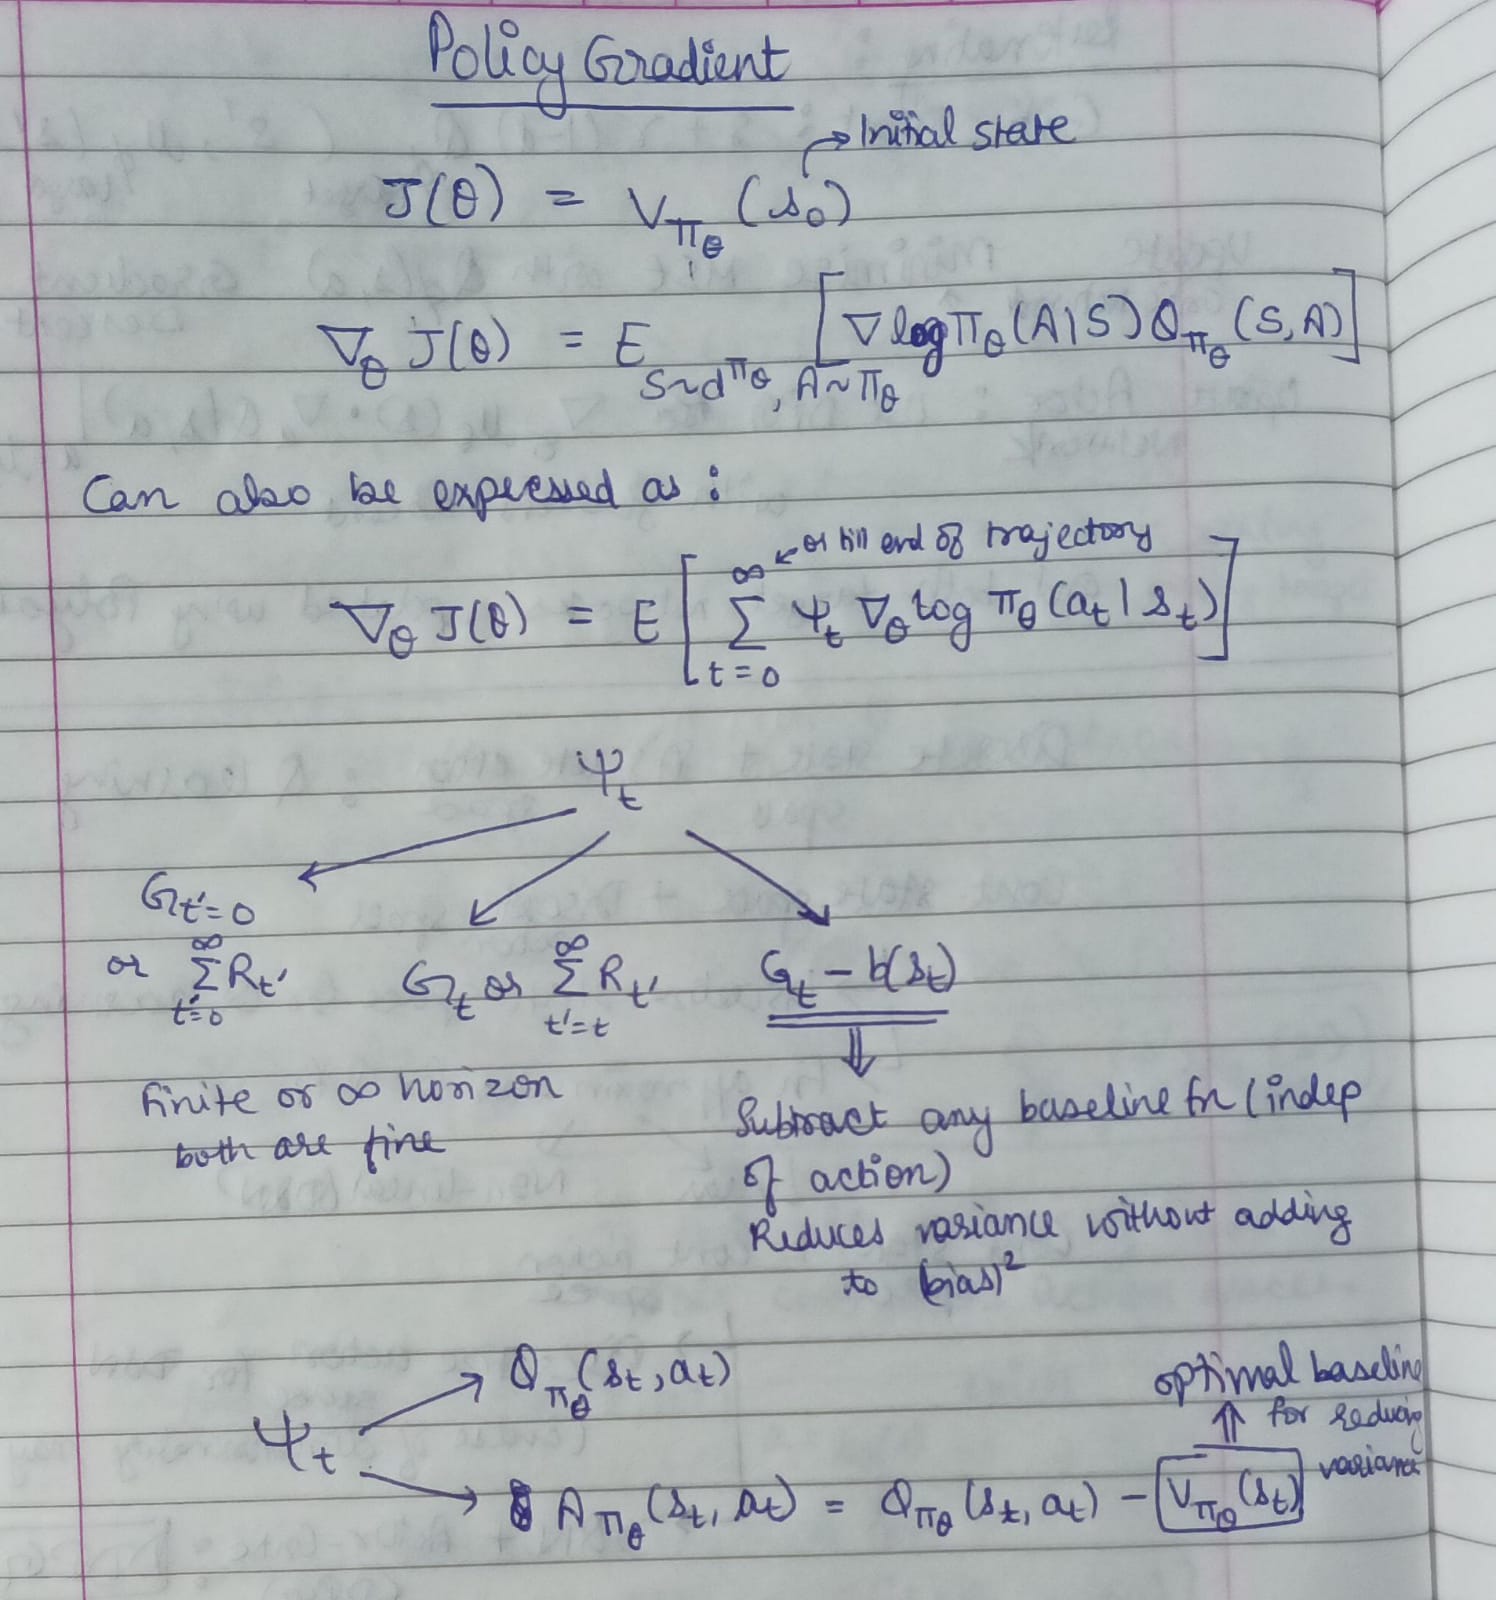 Policy Gradient
→ Initial state
J(θ) = V_πθ (s₀)
∇_θ J(θ) = E_{S~d^πθ, A~πθ} [∇ log π_θ (A|S) Q_πθ (S,A)]
Can also be expressed as :
← or till end of trajectory
∇_θ J(θ) = E [ ∑_{t=0}^{∞} Ψ_t ∇_θ log π_θ (a_t | s_t) ]
Ψ_t
G_{t'=0}
or ∑_{t'=0}^{∞} R_t' G_t or ∑_{t'=t}^{∞} R_t' G_t − b(s_t)
⇓
finite or ∞ horizon
both are fine
Subtract any baseline fn (indep
of action)
Reduces variance without adding
to (bias)²
Q_πθ (s_t, a_t)
optimal baseline
⇑ for reducing
variance
Ψ_t
A_πθ (s_t, a_t) = Q_πθ (s_t, a_t) − V_πθ (s_t)